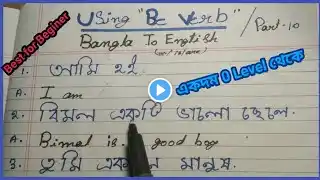 Using "Be Verb"
Bangla To English
(am/is/are)
Part-10
Best for Beginer
একদম 0 Level থেকে
1. আমি হই.
A. I am
2. বিমল একটি ভালো ছেলে.
A. Bimal is good boy
3. তুমি মানুষ.